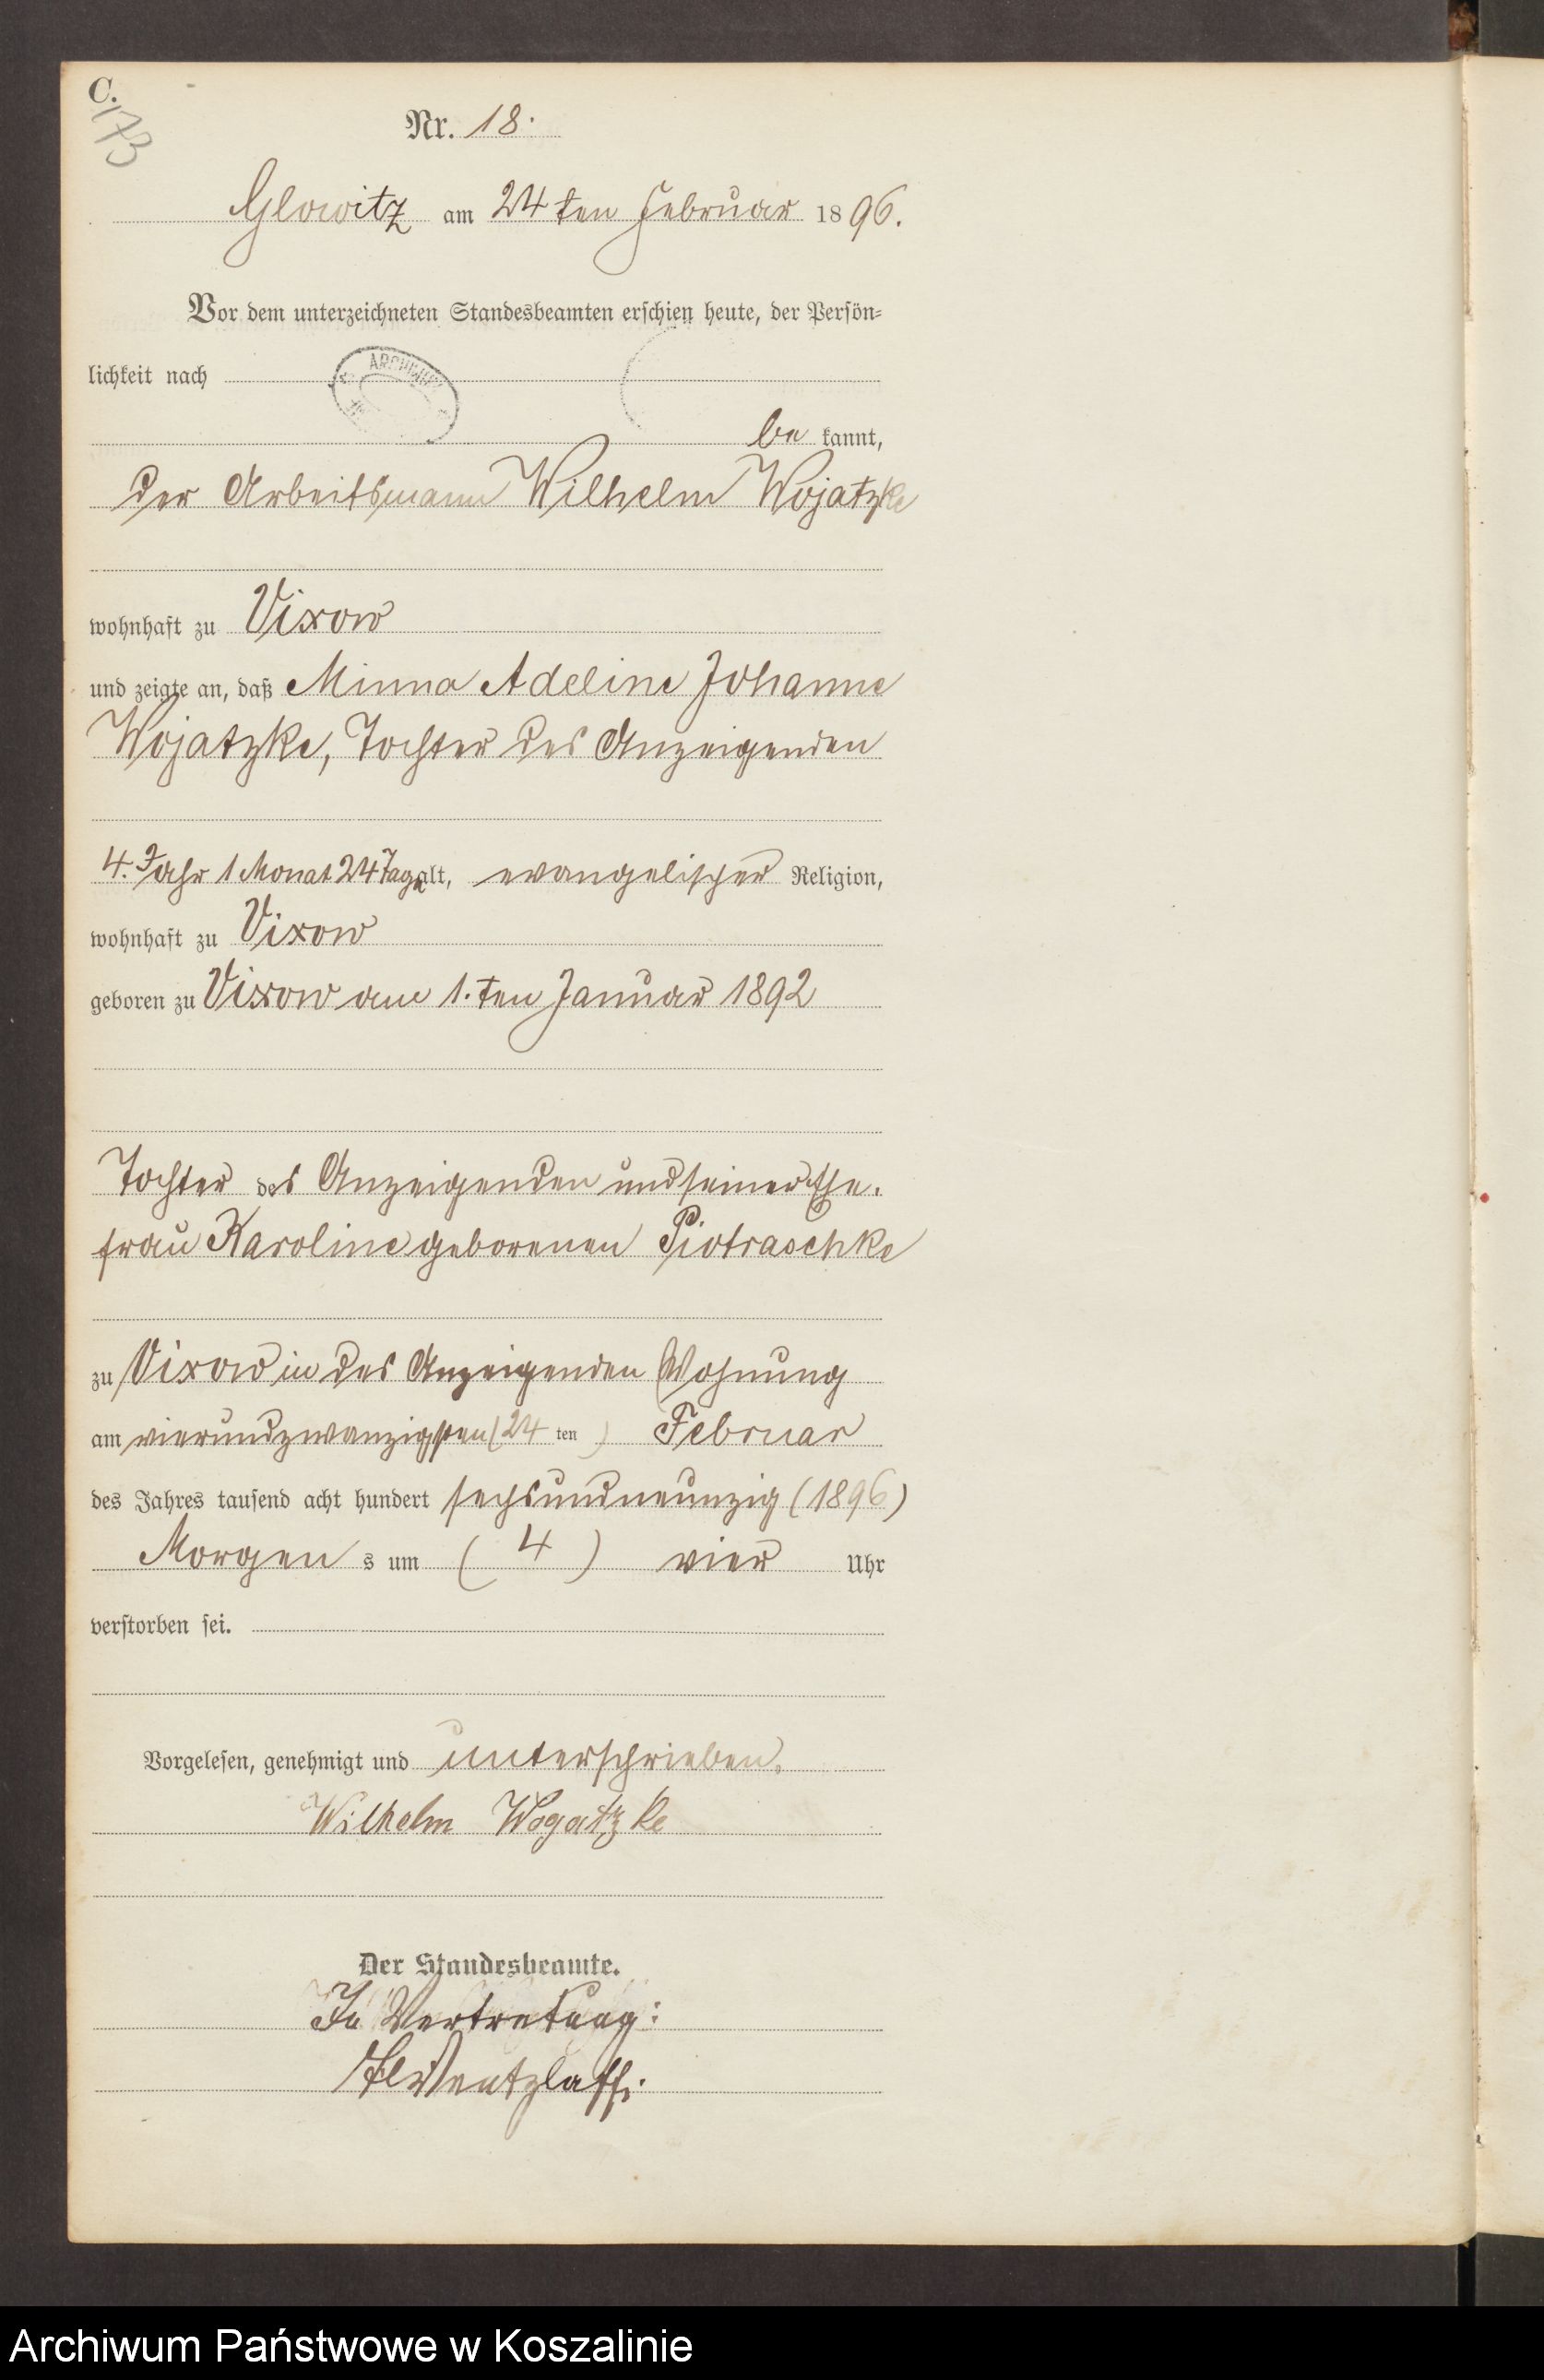 C.
173
Nr. 18.
Glowitz am 24ten Februar 1896.
Vor dem unterzeichneten Standesbeamten erschien heute, der Persön-
lichkeit nach
be kannt,
der Arbeitsmann Wilhelm Wojatzke
wohnhaft zu Vixow
und zeigte an, daß Minna Adeline Johanne
Wojatzke, Tochter des Anzeigenden
4. Jahr 1 Monat 24 Tage alt, evangelischer Religion,
wohnhaft zu Vixow
geboren zu Vixow am 1.ten Januar 1892
Tochter des Anzeigenden und seiner Ehe.
frau Karoline geborenen Piotraschke
zu Vixow in des Anzeigenden Wohnung
am vierundzwanzigsten (24 ten) Februar
des Jahres tausend acht hundert sechsundneunzig (1896)
Morgen s um (4) vier Uhr
verstorben sei.
Vorgelesen, genehmigt und unterschrieben.
Wilhelm Wogatzke
Der Standesbeamte.
In Vertretung:
Wentzlaff.
Archiwum Państwowe w Koszalinie